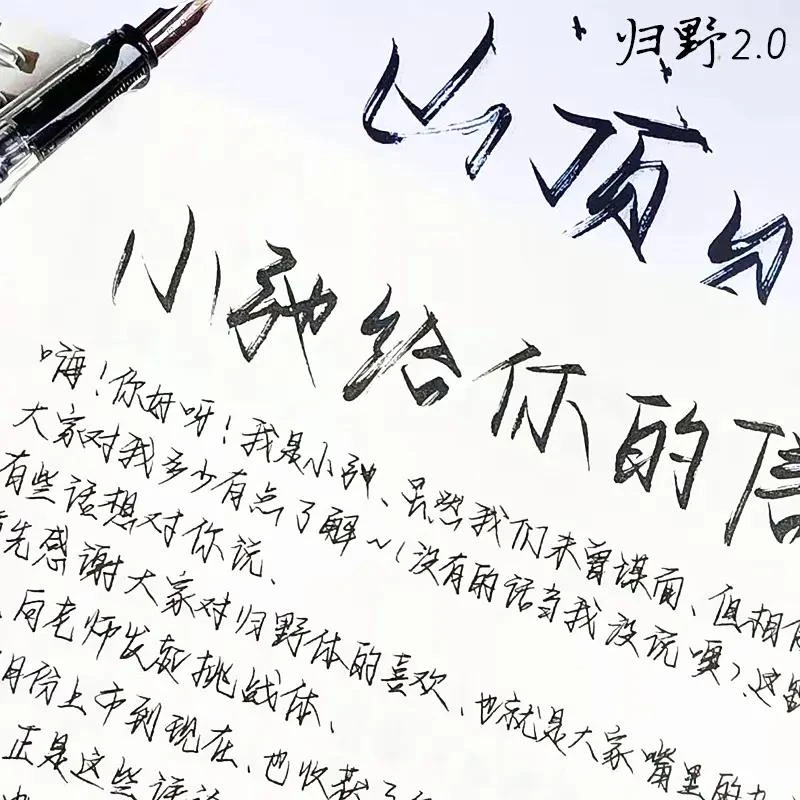 归野2.0
山顶
小 给你的信
嗨!你好呀!我是小 、虽然我们未曾谋面、但相
大家对我多少有点了解~(没有的话当我没说噢)、这
有些话想对你说、
先感谢大家对归野体的喜欢、也就是大家嘴里的
向老师发起挑战体、
月份上市到现在、也收获了
正是这些